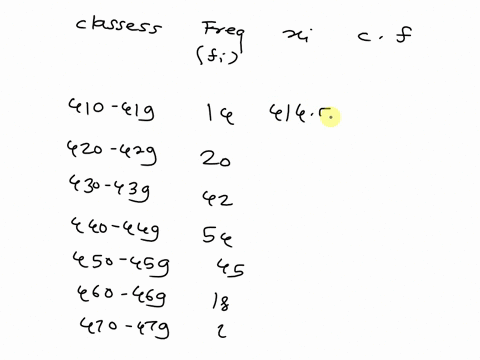 classess Freq xi c.f
(fi)
410-419 14 414.5
420-429 20
430-439 42
440-449 54
450-459 45
460-469 18
470-479 2